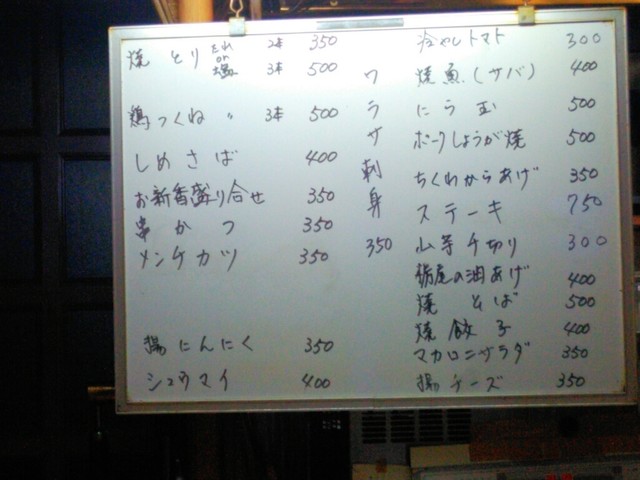 焼とり たれ or 塩 2本 350
3本 500
鶏つくね 〃 3本 500
しめさば 400
お新香盛り合せ 350
串かつ 350
メンチカツ 350
揚にんにく 350
シュウマイ 400
ワラサ刺身 350
冷やしトマト 300
焼魚(サバ) 400
にら玉 500
ポークしょうが焼 500
ちくわからあげ 350
ステーキ 750
山芋千切り 300
栃尾の油あげ 400
焼そば 500
焼餃子 400
マカロニサラダ 350
揚チーズ 350